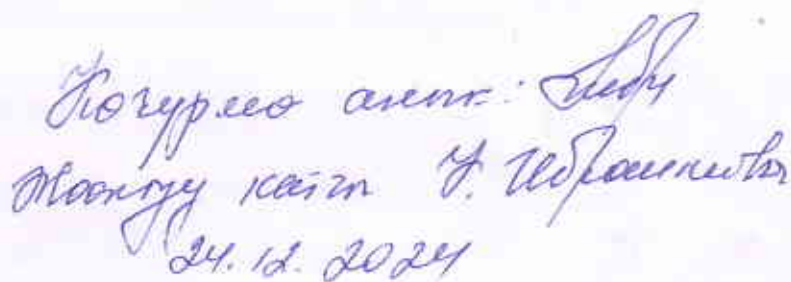 Көчүрмө анык:
Жооптуу катчы У. Ибраимова
24.12.2024